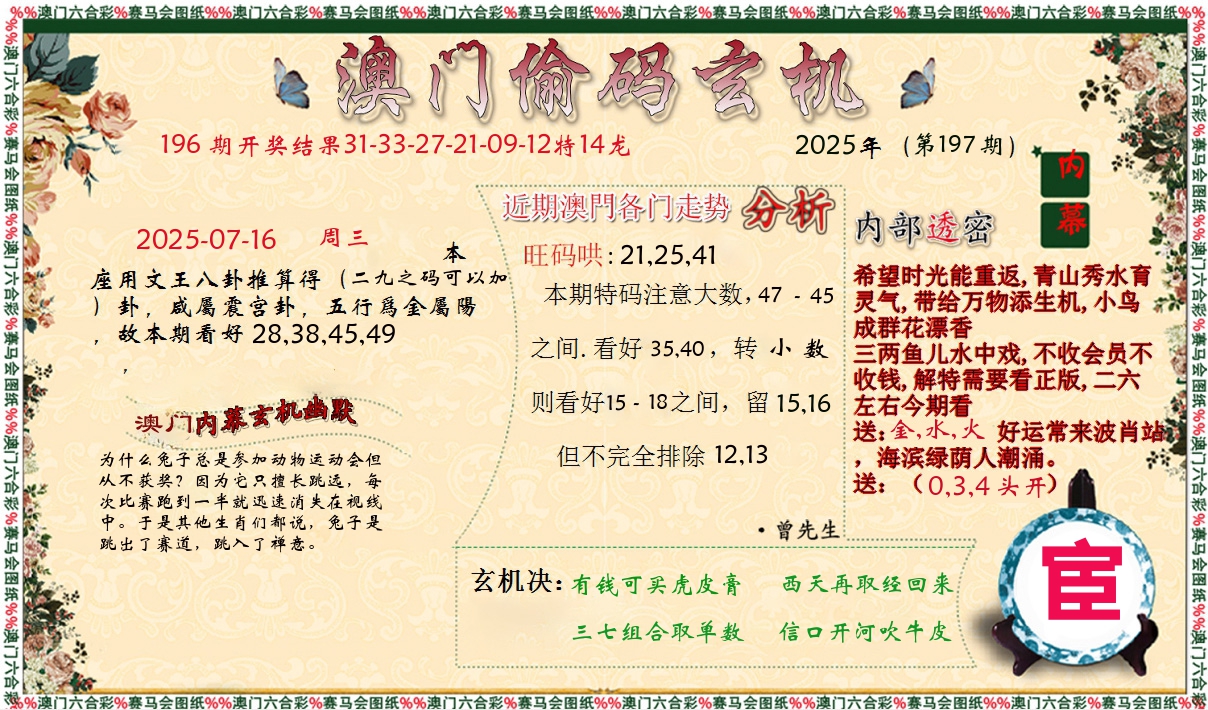 %%澳门六合彩%赛马会图纸%%澳门六合彩%赛马会图纸%%澳门六合彩%赛马会图纸%%澳门六合彩%赛马会图纸%%澳门六合彩%赛马会图纸%%澳门六合彩%赛马会图纸%%
澳门偷码玄机
196 期开奖结果31-33-27-21-09-12特14龙
2025年（第197期）
内幕
2025-07-16 周三
本
座用文王八卦推算得（二九之码可以加
）卦，咸屬震宫卦，五行爲金屬陽
，故本期看好 28,38,45,49
，
澳门内幕玄机幽默
为什么兔子总是参加动物运动会但
从不获奖？因为它只擅长跳远，每
次比赛跑到一半就迅速消失在视线
中。于是其他生肖们都说，兔子是
跳出了赛道，跳入了禅意。
近期澳門各门走势 分析
旺码哄: 21,25,41
本期特码注意大数, 47 - 45
之间. 看好 35,40 ，转 小 数
则看好15 - 18之间，留 15,16
但不完全排除 12,13
·曾先生
内部透密
希望时光能重返, 青山秀水育
灵气, 带给万物添生机, 小鸟
成群花漂香
三两鱼儿水中戏, 不收会员不
收钱, 解特需要看正版, 二六
左右今期看
送: 金, 水, 火 好运常来波肖站
，海滨绿荫人潮涌。
送: （0,3,4 头开）
玄机决: 有钱可买虎皮膏 西天再取经回来
三七组合取单数 信口开河吹牛皮
宦
%%澳门六合彩%赛马会图纸%%澳门六合彩%赛马会图纸%%澳门六合彩%赛马会图纸%%澳门六合彩%赛马会图纸%%澳门六合彩%赛马会图纸%%澳门六合彩%赛马会图纸%%